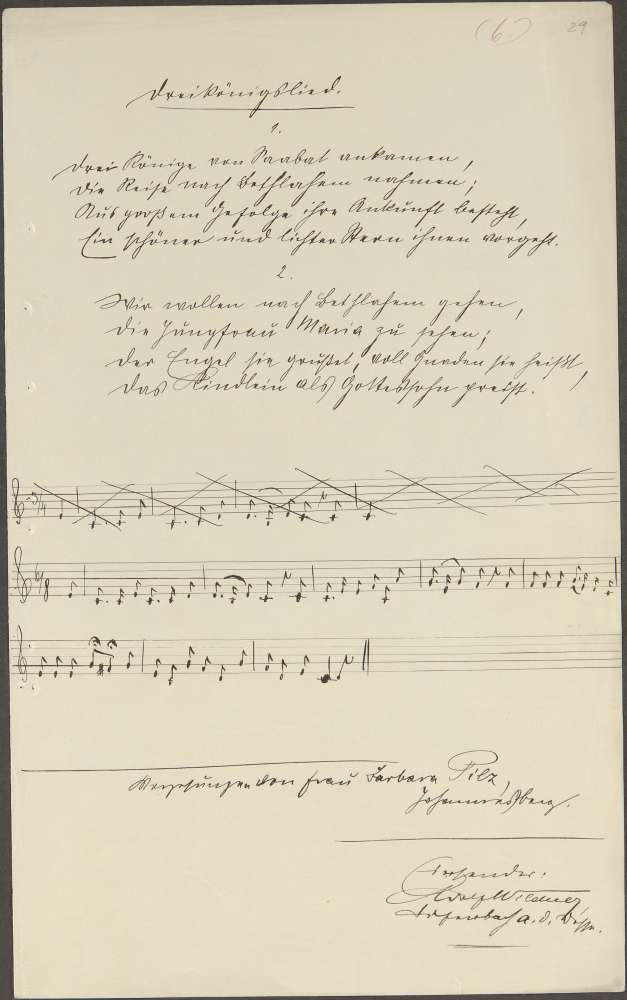 (6.) 29
Dreikönigslied.
1.
Drei Könige von Saabat ankamen,
Die Reise nach Bethlehem nahmen;
Aus großem Gefolge ihre Ankunft besteht,
Ein schöner und lichter Stern ihnen vorgeht.
2.
Wir wollen nach Bethlehem gehen,
Die Jungfrau Maria zu sehen;
Der Engel sie grüßet, voll Gnaden sie heißt,
Das Kindlein als Gottessohn preist.
3/4
6/8
Vorgesungen von Frau Barbara Pilz,
Johannesberg.
Einsender:
Adolf
a. d. Desse.